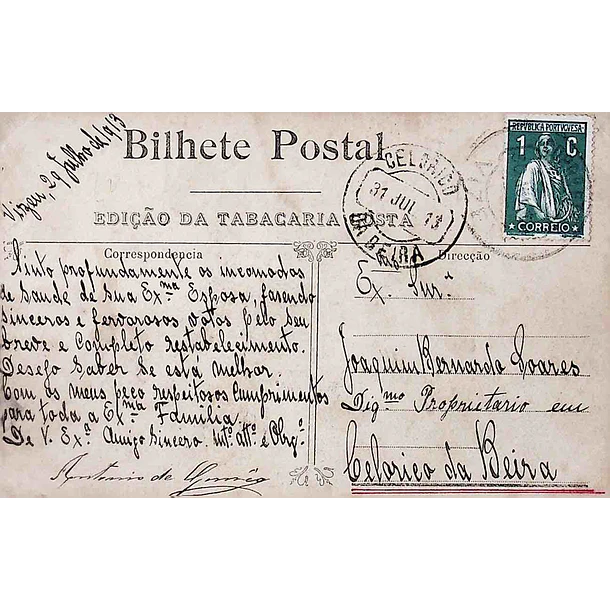 Vizeu, 29 Julho de 1913
Bilhete Postal
EDIÇÃO DA TABACARIA COSTA
REPUBLICA PORTUGUESA
1 C
CORREIO
CELORICO
31 JUL 13
DA BEIRA
Correspondencia
Sinto profundamente os incomodos
de saude de sua Ex.ma Esposa, fasendo
sinceros e fervorosos votos pelo seu
breve e completo restabelecimento.
Desejo saber se está melhor.
Com os meus peço respeitosos cumprimentos
para toda a Ex.ma Familia
De V. Ex.ª Amigo Sincero. Mt.º att.º e Obrg.º
Antonio de
Direcção
Ex. Snr.
Joaquim Bernardo Soares
Dig.mo Proprietario em
Celorico da Beira